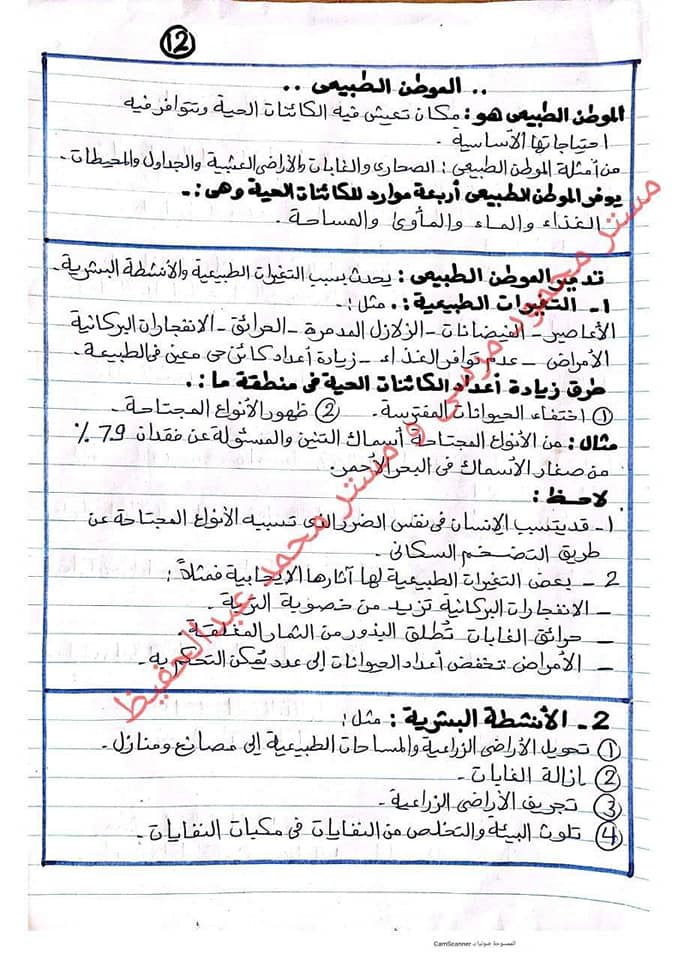 12
.. الموطن الطبيعى ..
الموطن الطبيعى هو : مكان تعيش فيه الكائنات الحية وتتوافر فيه
احتياجاتها الأساسية .
من أمثلة الموطن الطبيعى : الصحارى والغابات والأراضى العشبية والجداول والمحيطات .
يوفر الموطن الطبيعى أربعة موارد للكائنات الحية وهى :-
الغذاء والماء والمأوى والمساحة .
تدمير الموطن الطبيعى : يحدث بسبب التغيرات الطبيعية والأنشطة البشرية .
1- التغيرات الطبيعية : . مثل :-
الأعاصير - الفيضانات - الزلازل المدمرة - الحرائق - الانفجارات البركانية
الأمراض - عدم توافر الغذاء - زيادة أعداد كائن حى معين فى الطبيعة .
طرق زيادة أعداد الكائنات الحية فى منطقة ما : .
① اختفاء الحيوانات المفترسة . ② ظهور الأنواع المجتاحة .
مثال : من الأنواع المجتاحة أسماك التنين والمسئولة عن فقدان 79 %
من صغار الأسماك فى البحر الأحمر .
لاحظ :
1- قد يتسبب الإنسان فى نفس الضرر الذى تسببه الأنواع المجتاحة عن
طريق التضخم السكانى .
2 - بعض التغيرات الطبيعية لها آثارها الإيجابية فمثلاً :
- الانفجارات البركانية تزيد من خصوبة التربة .
- حرائق الغابات تُطلق البذور من الثمار المغلقة .
- الأمراض تخفض أعداد الحيوانات إلى عدد يُمكن التحكم به .
2 - الأنشطة البشرية : مثل :
① تحويل الأراضى الزراعية والمساحات الطبيعية إلى مصانع ومنازل .
② إزالة الغابات .
③ تجريف الأراضى الزراعية .
④ تلوث البيئة والتخلص من النفايات فى مكبات النفايات .
مستر محمود مرسى و مستر محمد عبدالحفيظ
الممسوحة ضوئيا بـ CamScanner